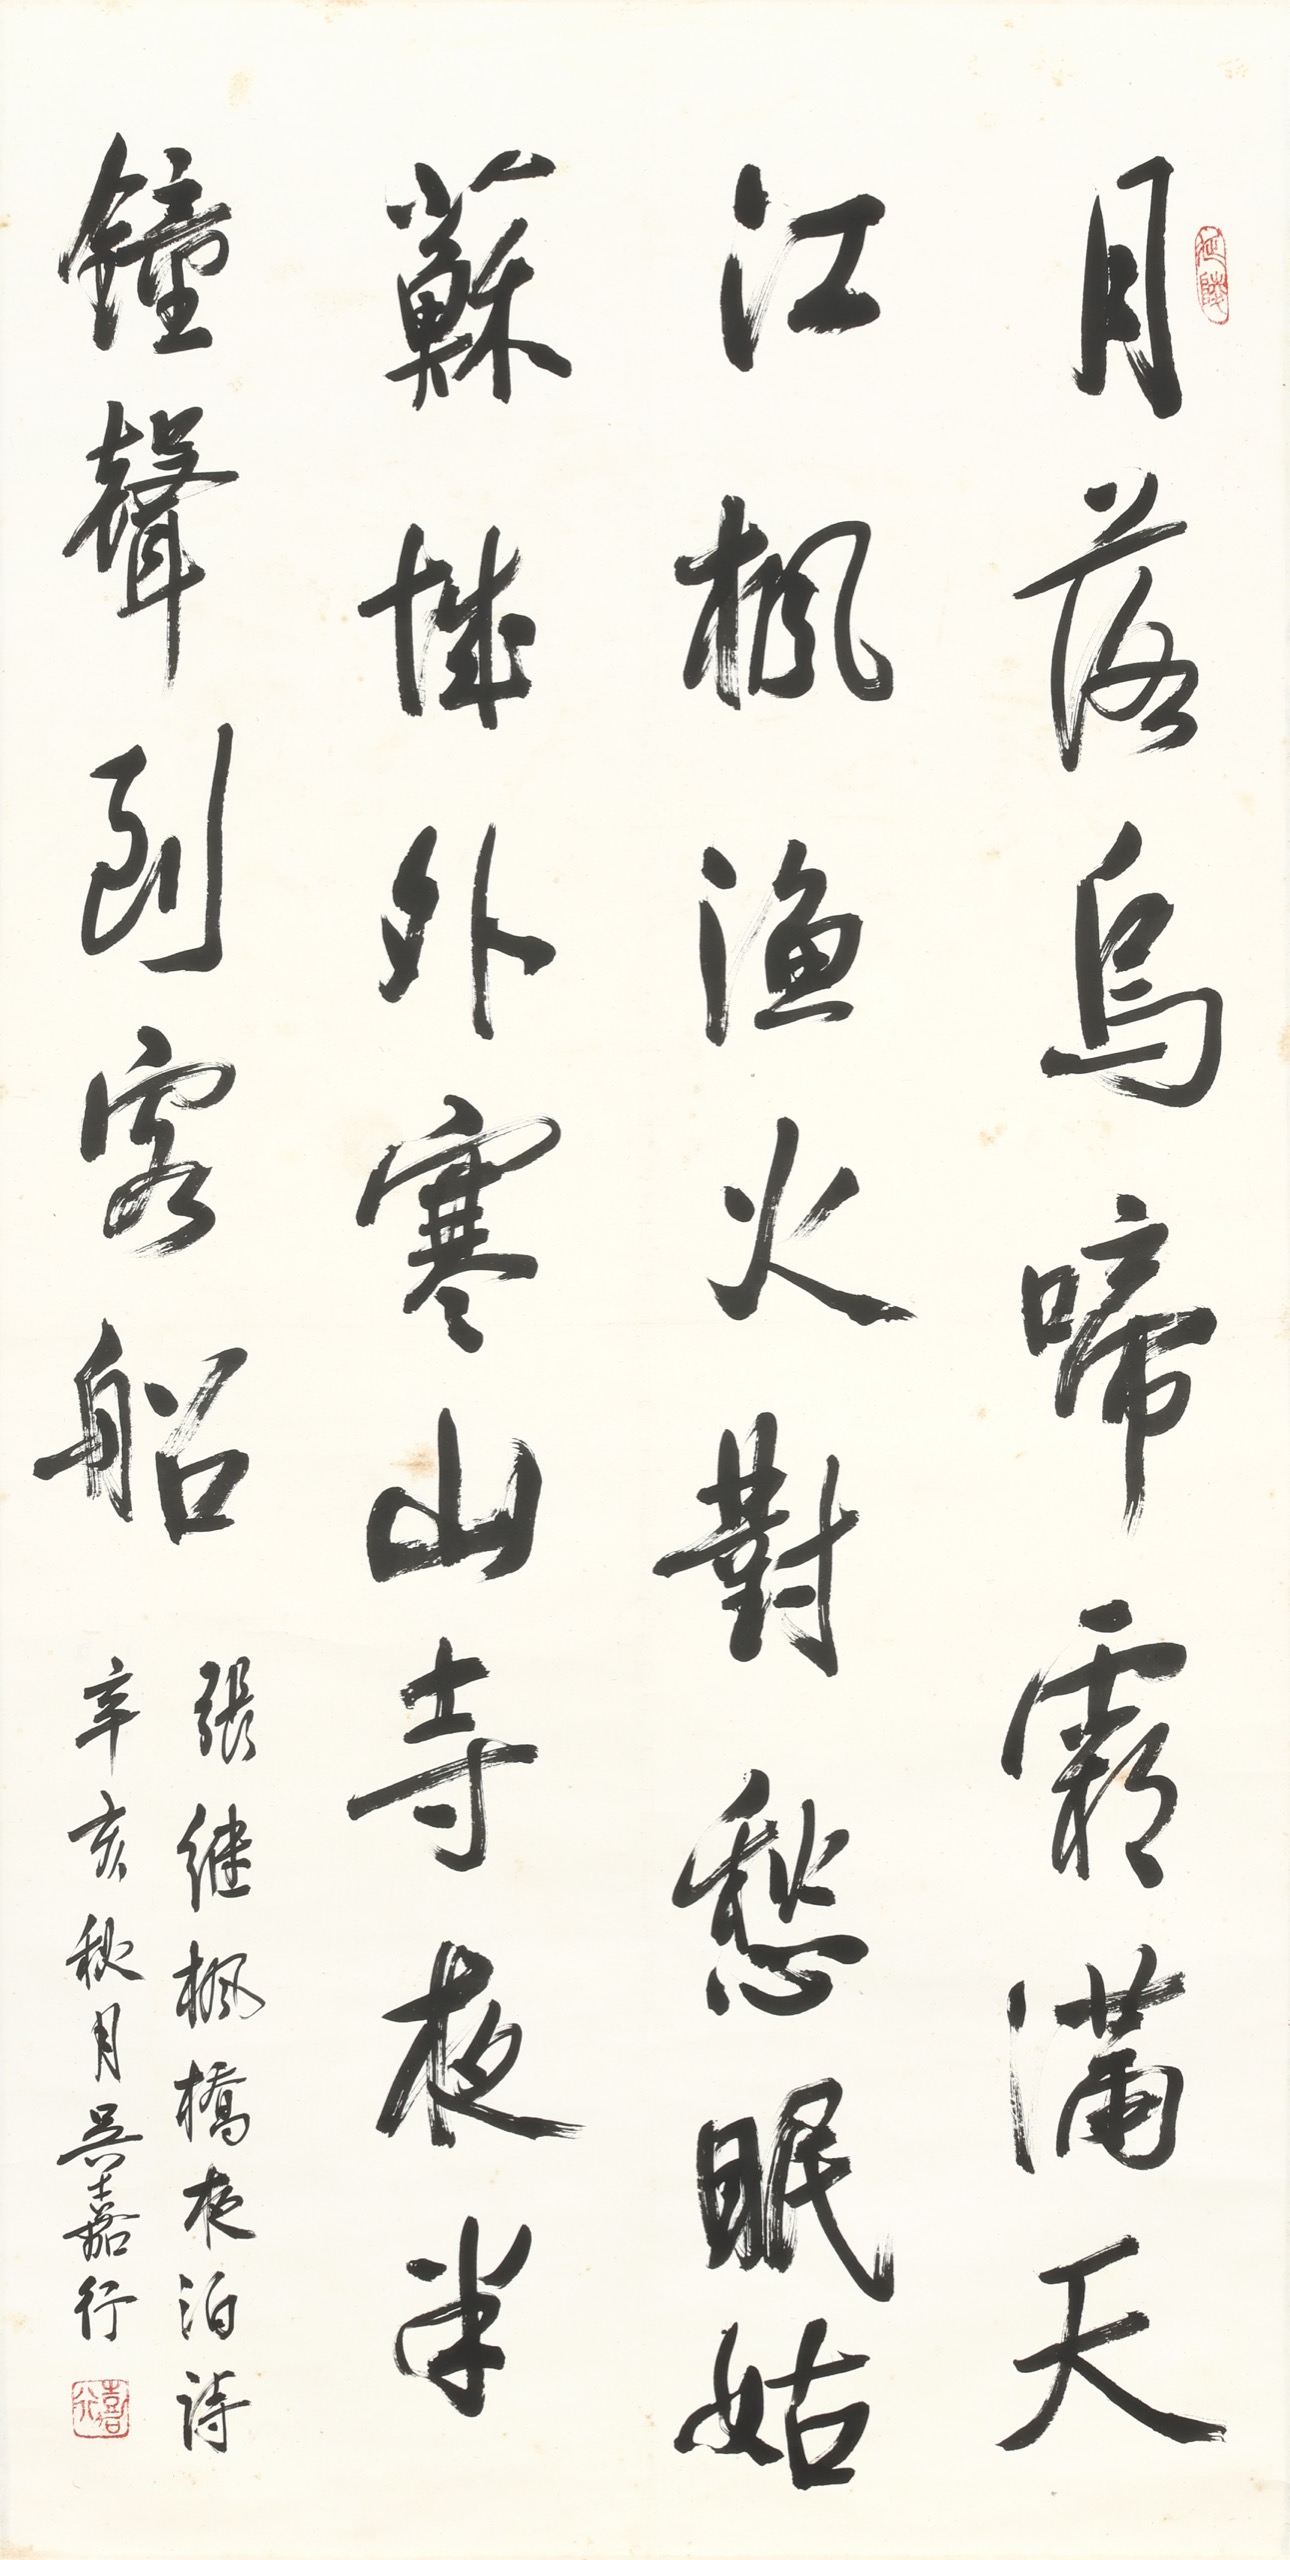 延陵
月落烏啼霜滿天
江楓漁火對愁眠姑
蘇城外寒山寺夜半
鐘聲到客船
張继楓橋夜泊詩
辛亥秋月吳嘉行
嘉行